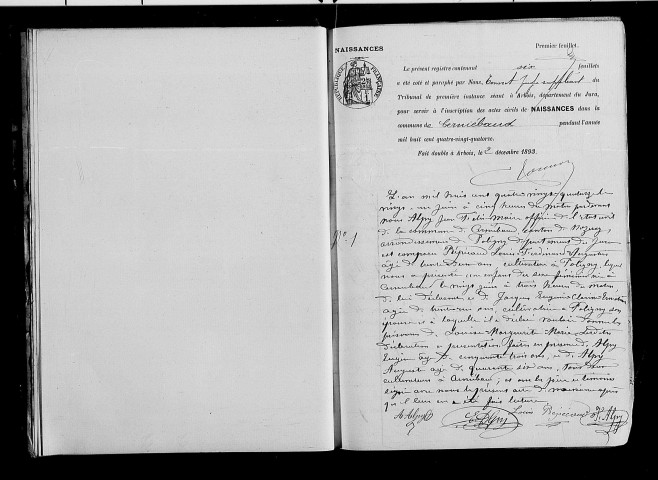 NAISSANCES
Premier feuillet.
RÉPUBLIQUE FRANÇAISE
Le présent registre contenant six feuillets
a été coté et paraphé par Nous, juge suppléant du
Tribunal de première instance séant à Arbois, département du Jura,
pour servir à l'inscription des actes civils de NAISSANCES dans la
commune de Cerniébaud pendant l'année
mil huit cent quatre-vingt-quatorze.
Fait double à Arbois, le 2 décembre 1893.
No. 1
L'an mil huit cent quatre vingt quatorze le
vingt un juin à cinq heures du matin par devant
nous Alpy Jean maire officier de l'état civil
de la commune de Cerniébaud, canton de Nozeroy
arrondissement de Poligny département du Jura
est comparu Louis Ferdinand Augustin
âgé de trente ans, cultivateur à Foligny, lequel
nous a présenté un enfant du sexe féminin né à
Cerniébaud le vingt juin à trois heures du matin
de lui déclarant et de Jacques Eugénie
âgée de trente ans, cultivatrice à Foligny son
épouse et à laquelle il a déclaré vouloir donner les
prénoms de Louise Marguerite Maria Les dites
déclaration et présentation faites en présence de Alpy
Eugène âgé de cinquante trois ans, et de Alpy
Auguste âgé de quarante six ans, tous deux
cultivateurs à Cerniébaud, et ont les père et témoins
signé avec nous le présent acte de naissance après
qu'il leur en a été fait lecture
A. Alpy E. Alpy Louis Alpy